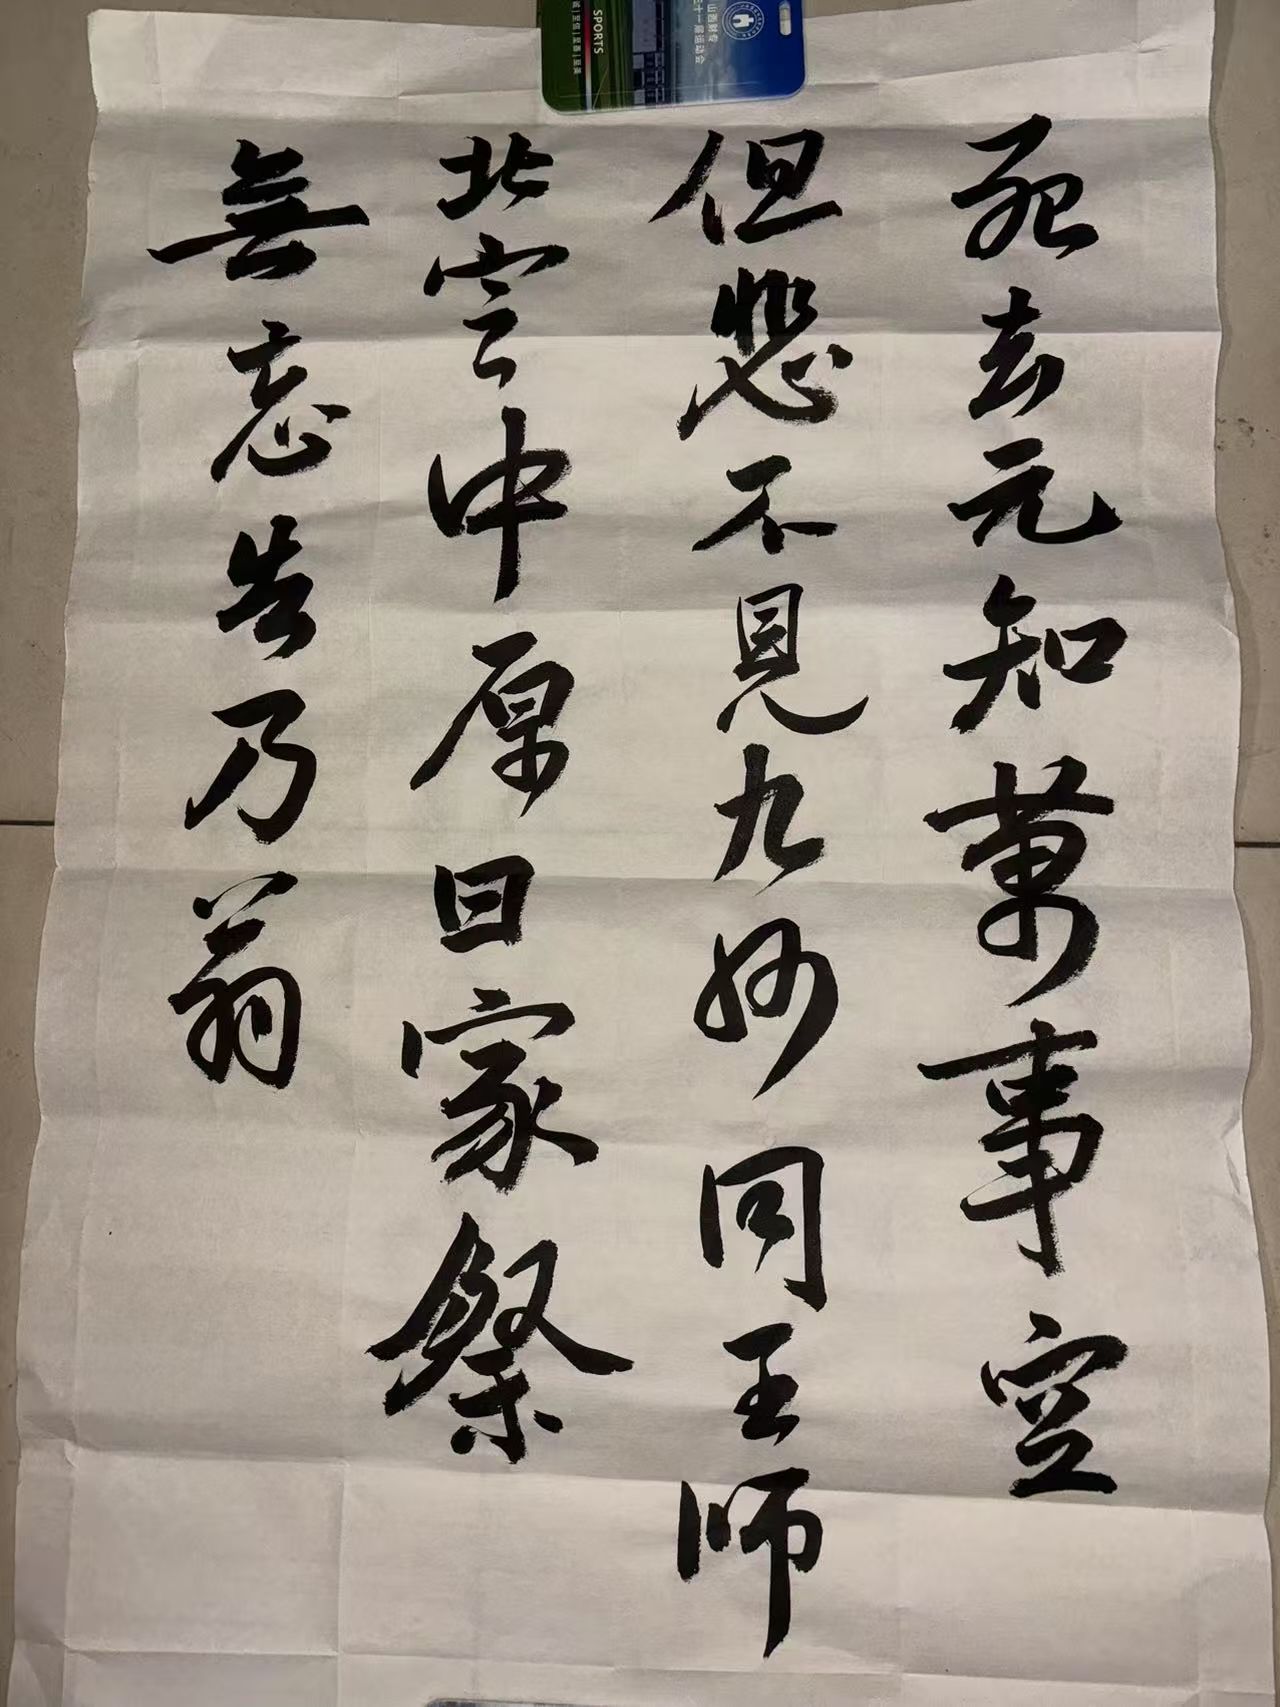 死去元知萬事空
但悲不見九州同王師
北定中原日家祭
無忘告乃翁
山西财专
十一届运动会
SPORTS
诚|至信|至善|至美